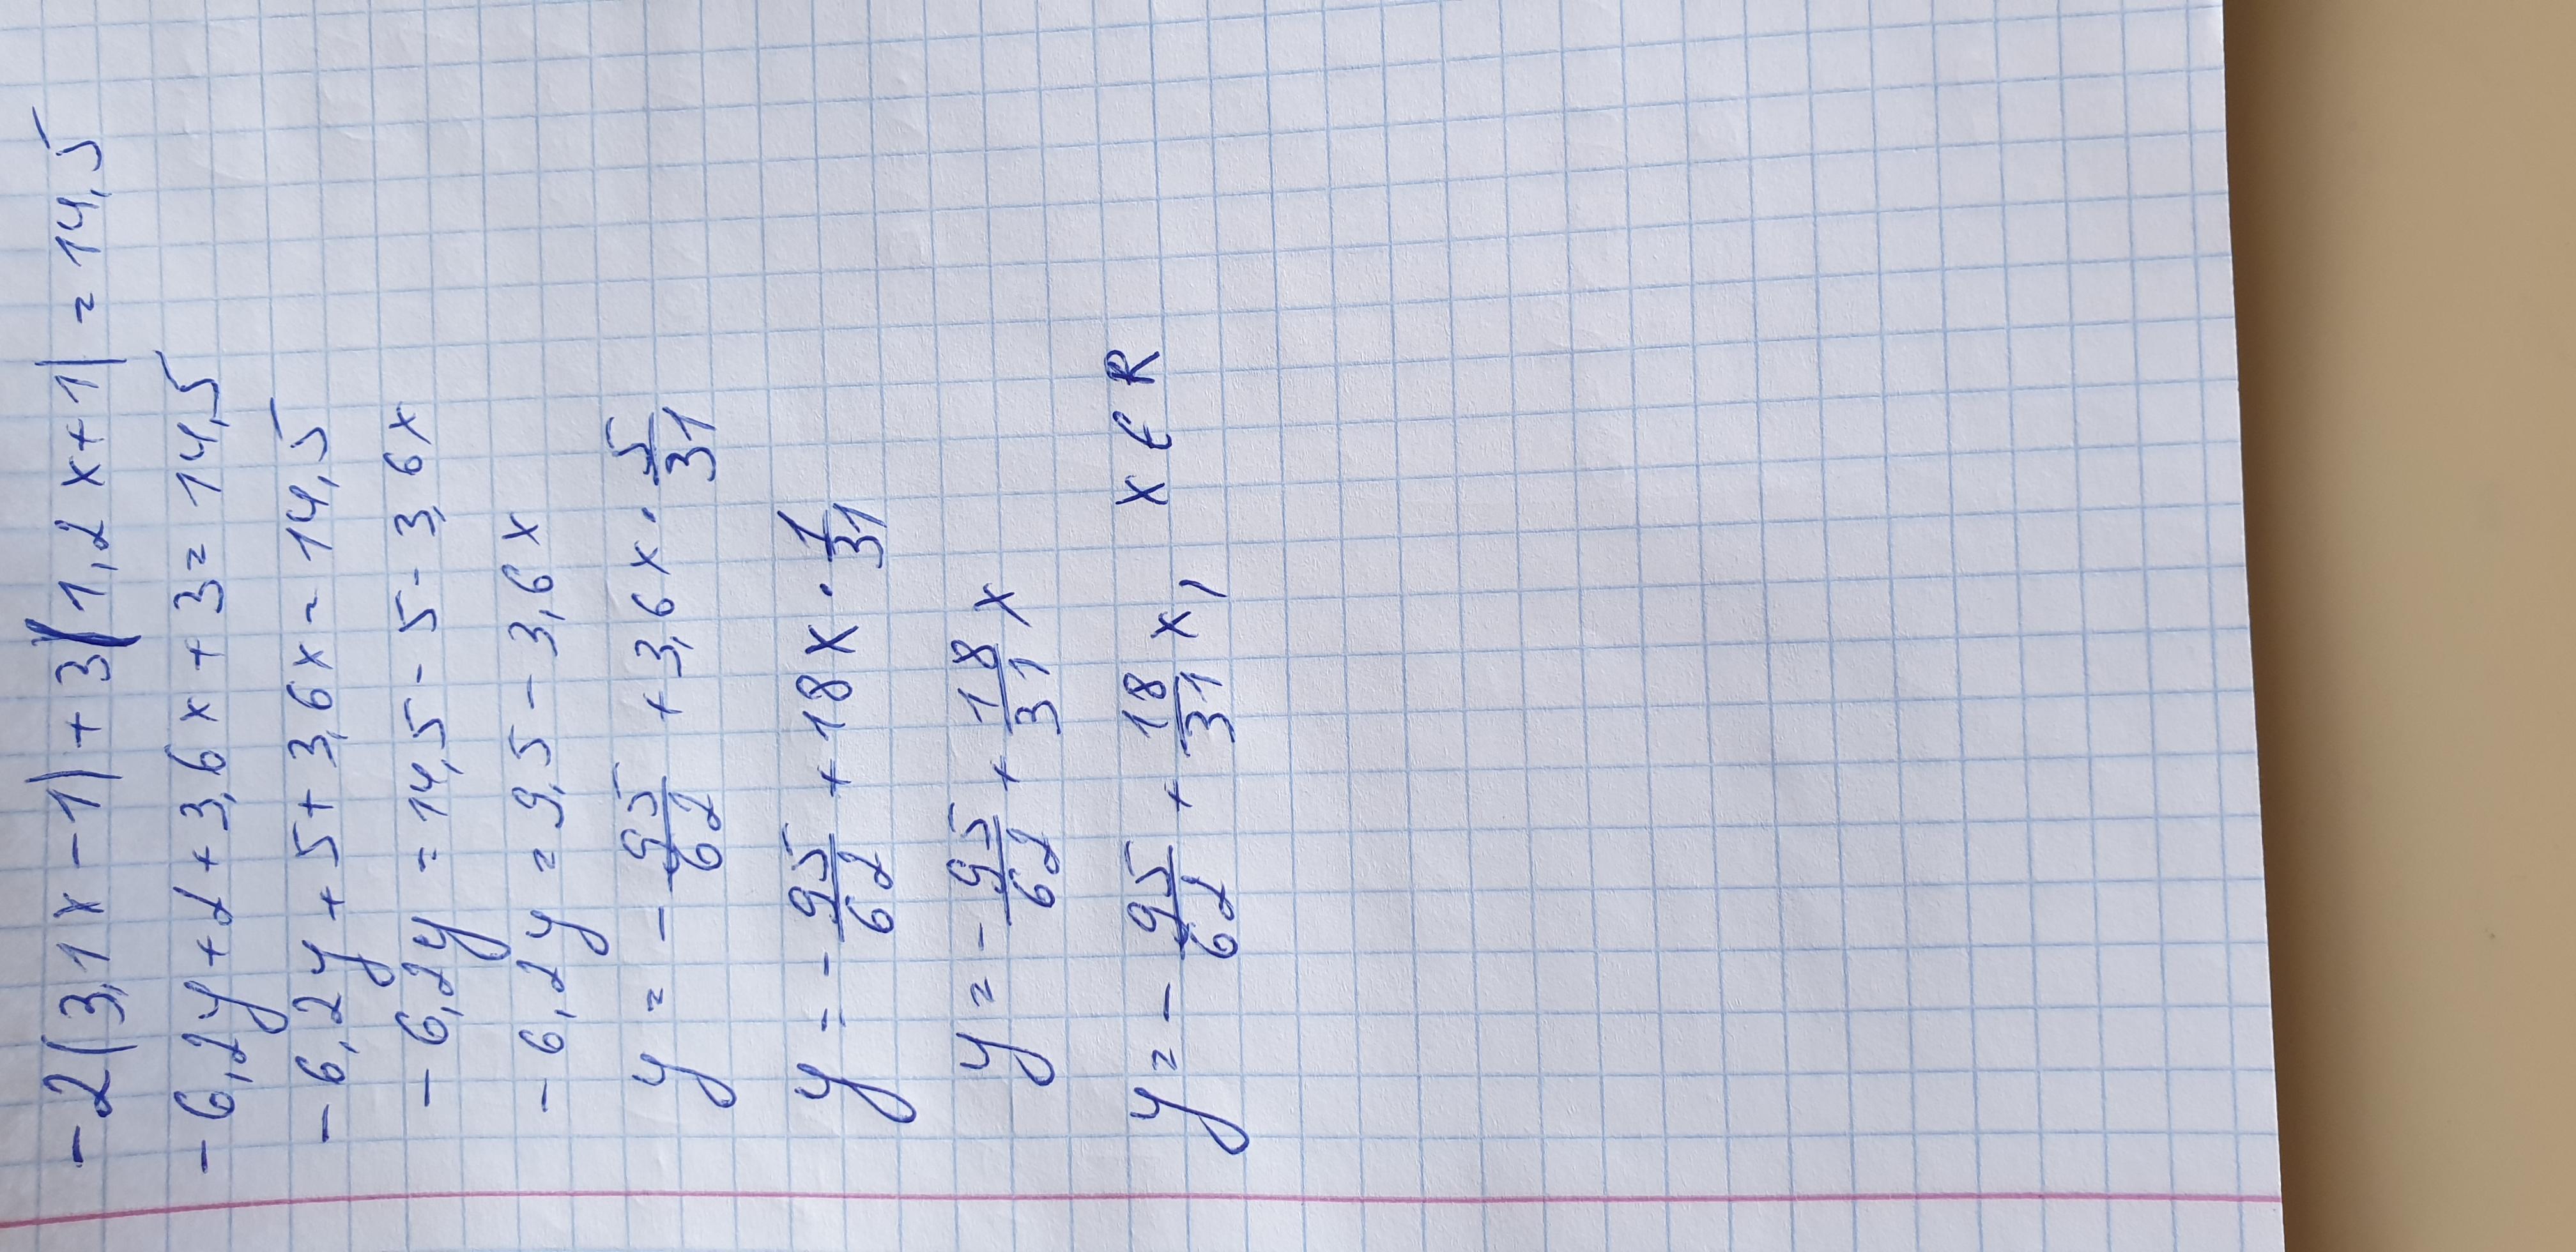 -2(3,1x-1)+3(1,2x+1)=14,5
-6,2y+2+3,6x+3=14,5
-6,2y+5+3,6x=14,5
-6,2y=14,5-5-3,6x
-6,2y=9,5-3,6x
y=-95/62+3,6x·5/31
y=-95/62+18x·1/31
y=-95/62+18/31x
y=-95/62+18/31x, x∈R